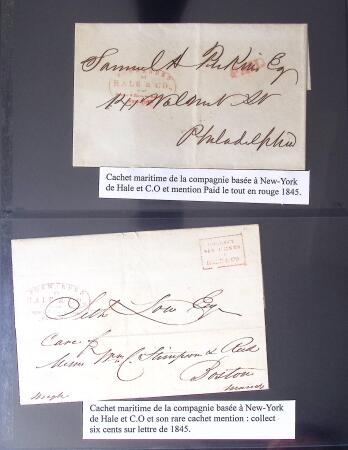 Samuel A Perkins Esq
HALE & CO.
PAID
141 Walnut St
Philadelphia
Cachet maritime de la compagnie basée à New-York
de Hale et C.O et mention Paid le tout en rouge 1845.
COLLECT
SIX CENTS
HALE & CO
Seth Low Esq
Care of
Messrs Wm C. Stimpson & Reid
Boston
Cachet maritime de la compagnie basée à New-York
de Hale et C.O et son rare cachet mention : collect
six cents sur lettre de 1845.